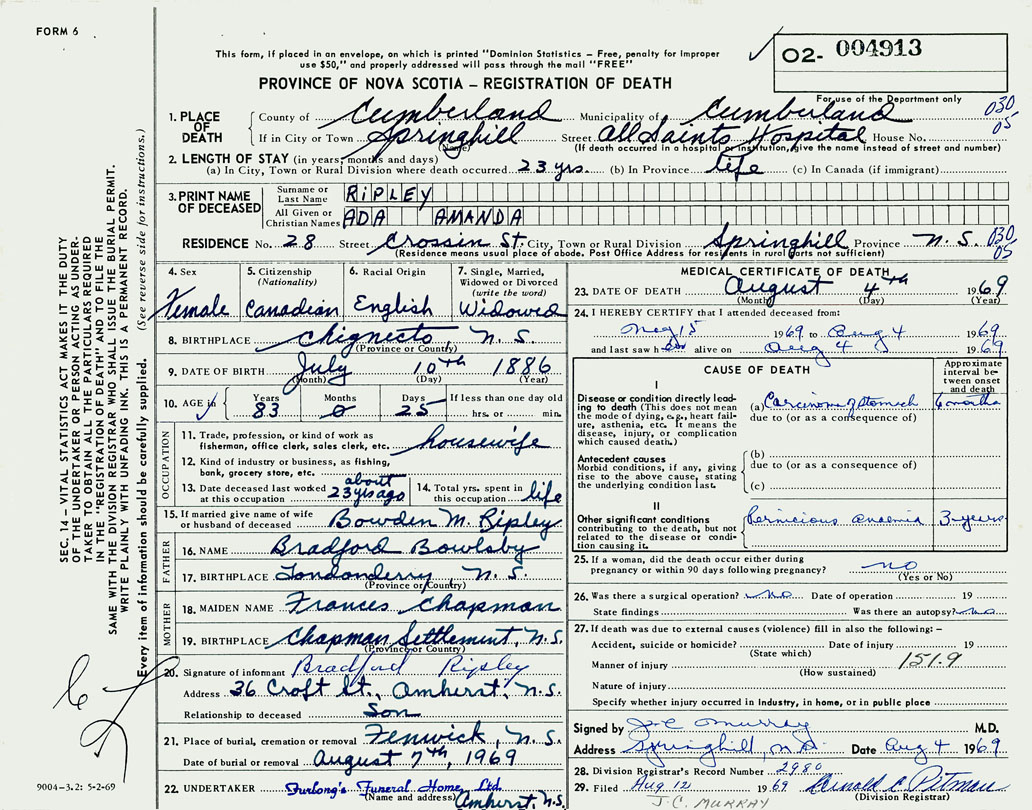 FORM 6
This form, if placed in an envelope, on which is printed "Dominion Statistics – Free, penalty for Improper
use $50," and properly addressed will pass through the mail "FREE"
O2- 004913
PROVINCE OF NOVA SCOTIA – REGISTRATION OF DEATH
For use of the Department only
1. PLACE OF DEATH
County of Cumberland Municipality of Cumberland 030
If in City or Town Springhill Street All Saints Hospital House No. 05
(Name) (If death occurred in a hospital or institution, give the name instead of street and number)
2. LENGTH OF STAY (in years, months and days)
(a) In City, Town or Rural Division where death occurred 23 yrs. (b) In Province life (c) In Canada (if immigrant)
3. PRINT NAME OF DECEASED
Surname or Last Name RIPLEY
All Given or Christian Names ADA AMANDA
RESIDENCE No. 28 Street Crossin St. City, Town or Rural Division Springhill Province N.S. 030 05
(Residence means usual place of abode. Post Office Address for residents in rural parts not sufficient)
4. Sex Female
5. Citizenship (Nationality) Canadian
6. Racial Origin English
7. Single, Married, Widowed or Divorced (write the word) Widowed
8. BIRTHPLACE Chignecto, N.S.
(Province or Country)
9. DATE OF BIRTH July 10th 1886
(Month) (Day) (Year)
10. AGE in Years 83 Months 0 Days 25 If less than one day old hrs. or min.
OCCUPATION
11. Trade, profession, or kind of work as fisherman, office clerk, sales clerk, etc. housewife
12. Kind of industry or business, as fishing, bank, grocery store, etc.
13. Date deceased last worked at this occupation about 23 yrs ago
14. Total yrs. spent in this occupation life
15. If married give name of wife or husband of deceased Bowden M. Ripley
FATHER
16. NAME Bradford Bowlsby
17. BIRTHPLACE Londonderry N.S.
(Province or Country)
MOTHER
18. MAIDEN NAME Frances Chapman
19. BIRTHPLACE Chapman Settlement, N.S.
(Province or Country)
20. Signature of informant Bradford Ripley
Address 36 Croft St., Amherst, N.S.
Relationship to deceased Son
21. Place of burial, cremation or removal Fenwick, N.S.
Date of burial or removal August 7th, 1969
22. UNDERTAKER Furlong's Funeral Home Ltd.
(Name and address) Amherst, N.S.
MEDICAL CERTIFICATE OF DEATH
23. DATE OF DEATH August 4th 1969
(Month) (Day) (Year)
24. I HEREBY CERTIFY that I attended deceased from:
May 15 1969 to Aug 4 1969
and last saw her alive on Aug 4 1969
CAUSE OF DEATH
Approximate interval between onset and death
I
Disease or condition directly leading to death (This does not mean the mode of dying, e.g., heart failure, asthenia, etc. It means the disease, injury, or complication which caused death.)
(a) Carcinoma of stomach 6 months
due to (or as a consequence of)
Antecedent causes
Morbid conditions, if any, giving rise to the above cause, stating the underlying condition last.
(b)
due to (or as a consequence of)
(c)
II
Other significant conditions contributing to the death, but not related to the disease or condition causing it.
Pernicious anaemia 3 years
25. If a woman, did the death occur either during pregnancy or within 90 days following pregnancy? no
(Yes or No)
26. Was there a surgical operation? no Date of operation 19
State findings Was there an autopsy? no
27. If death was due to external causes (violence) fill in also the following: –
Accident, suicide or homicide? Date of injury 19
(State which)
Manner of injury 151.9
(How sustained)
Nature of injury
Specify whether injury occurred in industry, in home, or in public place
Signed by J C Murray M.D.
Address Springhill, N.S. Date Aug 4 1969
28. Division Registrar's Record Number 2980
29. Filed Aug 12 1969 Pitman
(Division Registrar)
J.C. MURRAY
SEC. 14 – VITAL STATISTICS ACT MAKES IT THE DUTY
OF THE UNDERTAKER OR PERSON ACTING AS UNDERTAKER
TO OBTAIN ALL THE PARTICULARS REQUIRED
IN THE "REGISTRATION OF DEATH" AND TO FILE THE
SAME WITH THE DIVISION REGISTRAR WHO SHALL ISSUE THE BURIAL PERMIT.
WRITE PLAINLY WITH UNFADING INK. THIS IS A PERMANENT RECORD.
Every item of information should be carefully supplied. (See reverse side for instructions.)
9004-3.2: 5-2-69